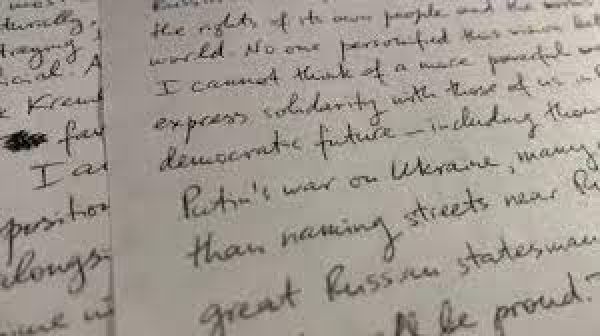 turally,
traying
cial. A
Krem
fav
I a
position
alongsi
the rights of its own people and the
world. No one personified this vision
I cannot think of a more powerful
express solidarity with those of us
democratic future — including those
Putin's war on Ukraine, many
than naming streets near Ru
great Russian statesman
be proud.